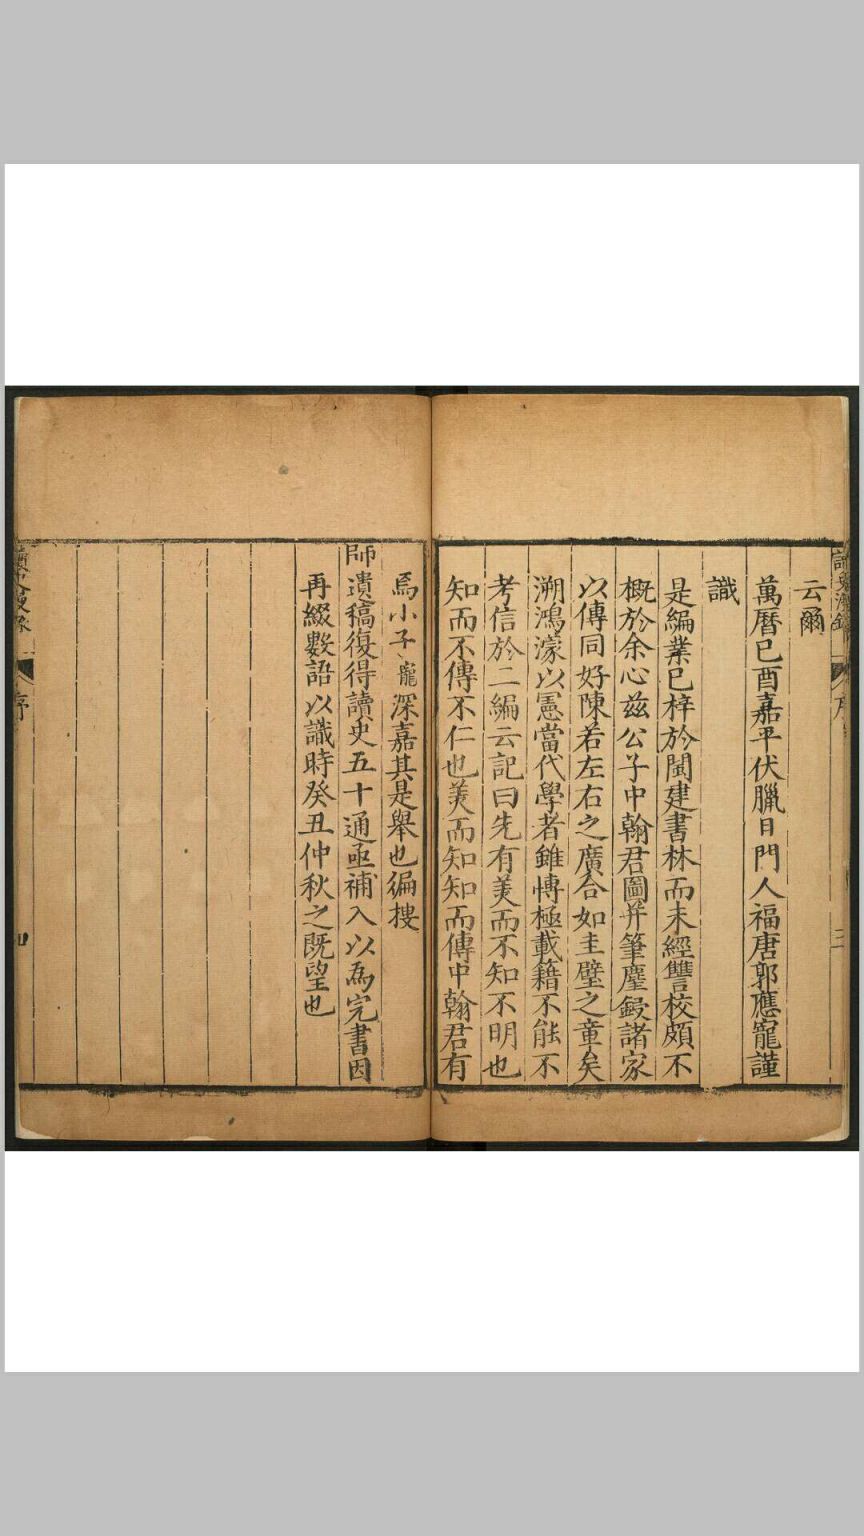 云爾
萬曆己酉嘉平伏臘日門人福唐郭應寵謹
識
是編業已梓於閩建書林而未經讐校頗不
概於余心茲公子中翰君圖并筆麈鋟諸家
以傳同好陳若左右之廣合如圭璧之章矣
溯鴻濛以憲當代學者雖愽極載籍不能不
考信於二編云記曰先有美而不知不明也
知而不傳不仁也美而知知而傳中翰君有
焉小子寵深嘉其是舉也徧搜
師遺稿復得讀史五十通亟補入以為完書因
再綴數語以識時癸丑仲秋之既望也
讀史漫錄
序
三
四